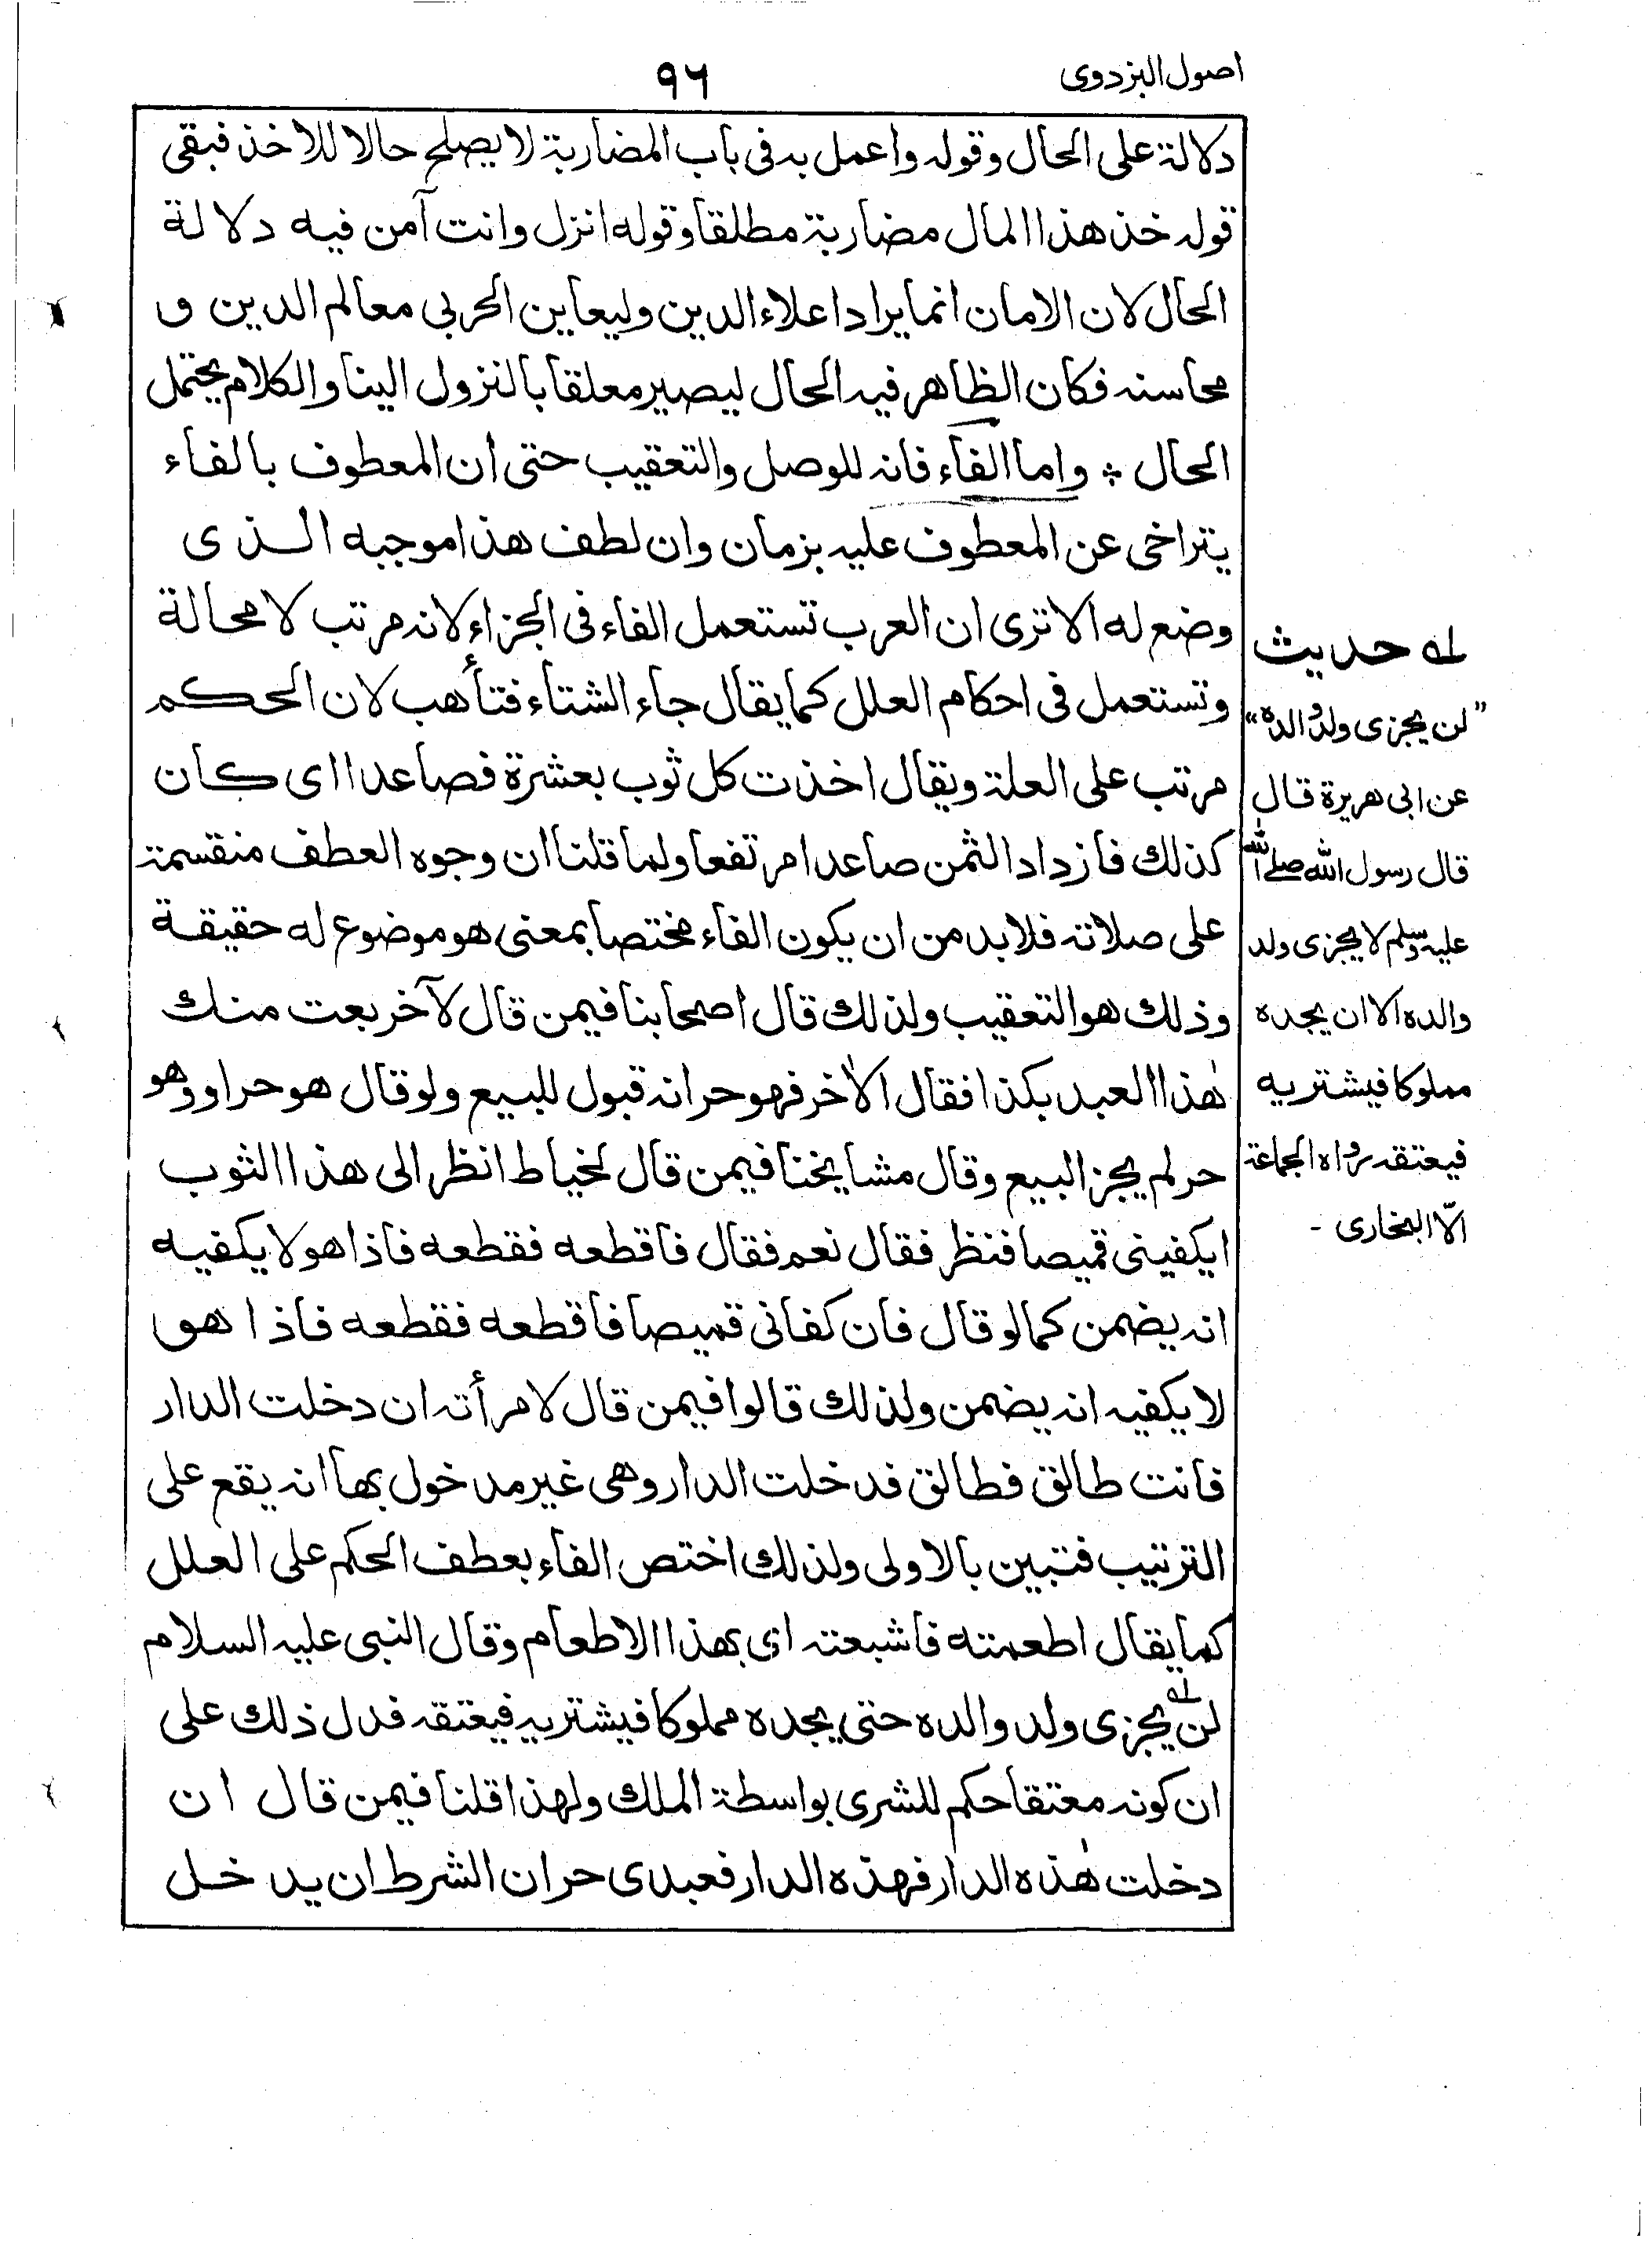 اصول البزدوی
۹۶
دلالة على الحال وقوله واعمل به فى باب المضاربة لا يصلح حالا للاخذ فبقى
قوله خذ هذا المال مضاربة مطلقا وقوله انزل وانت آمن فيه دلالة
الحال لان الامان انما يراد اعلاء الدين وليعاين الحربي معالم الدين و
محاسنه فكان الظاهر فيه الحال ليصير معلقا بالنزول الينا والكلام يحتمل
الحال * واما الفاء فانه للوصل والتعقيب حتى أن المعطوف بالفاء
يتراخى عن المعطوف عليه بزمان وان لطف هذا موجبه الذى
وضع له الا ترى ان العرب تستعمل الفاء فى الجزاء لانه مرتب لا محالة
وتستعمل فى احكام العلل كما يقال جاء الشتاء فتأهب لان الحكم
مرتب على العلة ويقال اخذت كل ثوب بعشرة فصاعدا اى كان
كذلك فازداد الثمن صاعدا مرتفعا ولما قلنا ان وجوه العطف منقسمة
على صلاته فلا بد من ان يكون الفاء مختصا بمعنى هو موضوع له حقيقة
وذلك هو التعقيب ولذلك قال اصحابنا فيمن قال لآخر بعت منك
هٰذا العبد بكذا فقال الاٰخر فهو حر انه قبول للبيع ولو قال هو حر او وهو
حر لم يجز البيع وقال مشايخنا فيمن قال لخياط انظر الى هذا الثوب
ايكفينى قميصا فنظر فقال نعم فقال فاقطعه فقطعه فاذا هو لا يكفيه
انه يضمن كما لو قال فان كفانى قميصا فاقطعه فقطعه فاذا هو
لا يكفيه انه يضمن ولذلك قالوا فيمن قال لامرأته ان دخلت الدار
فانت طالق فطالق فدخلت الدار وهى غير مدخول بها انه يقع على
الترتيب فتبين بالاولى ولذلك اختص الفاء بعطف الحكم على العلل
كما يقال اطعمته فاشبعته اى بهذا الاطعام وقال النبى عليه السلام
لن يجزى ولد والده حتى يجده مملوكا فيشتريه فيعتقه فدل ذلك على
ان كونه معتقا حكم للشرى بواسطة الملك ولهذا قلنا فيمن قال ان
دخلت هٰذه الدار فهذه الدار فعبدى حر ان الشرط ان يدخل
لـه حديث
"لن يجزى ولد والده"
عن ابى هريرة قال
قال رسول الله صلى الله
عليه وسلم لا يجزى ولد
والده الا ان يجده
مملوكا فيشتريه
فيعتقه رواه الجماعة
الّا البخارى -